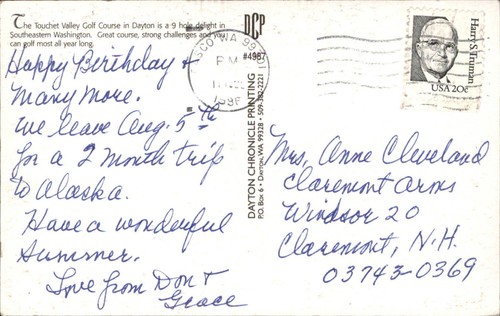 The Touchet Valley Golf Course in Dayton is a 9 hole delight in
Southeastern Washington. Great course, strong challenges and you
can golf most all year long.
Happy Birthday &
Many more.
We leave Aug. 5th
for a 2 month trip
to Alaska.
Have a wonderful
Summer.
Love from Don &
Grace
DCP
#4987
DAYTON CHRONICLE PRINTING
P.O. Box 6 • Dayton, WA 99328 • 509-382-2221
PASCO WA 993
PM
Harry S. Truman
USA 20c
Mrs. Anne Cleveland
Claremont Arms
Windsor 20
Claremont, N.H.
03743-0369